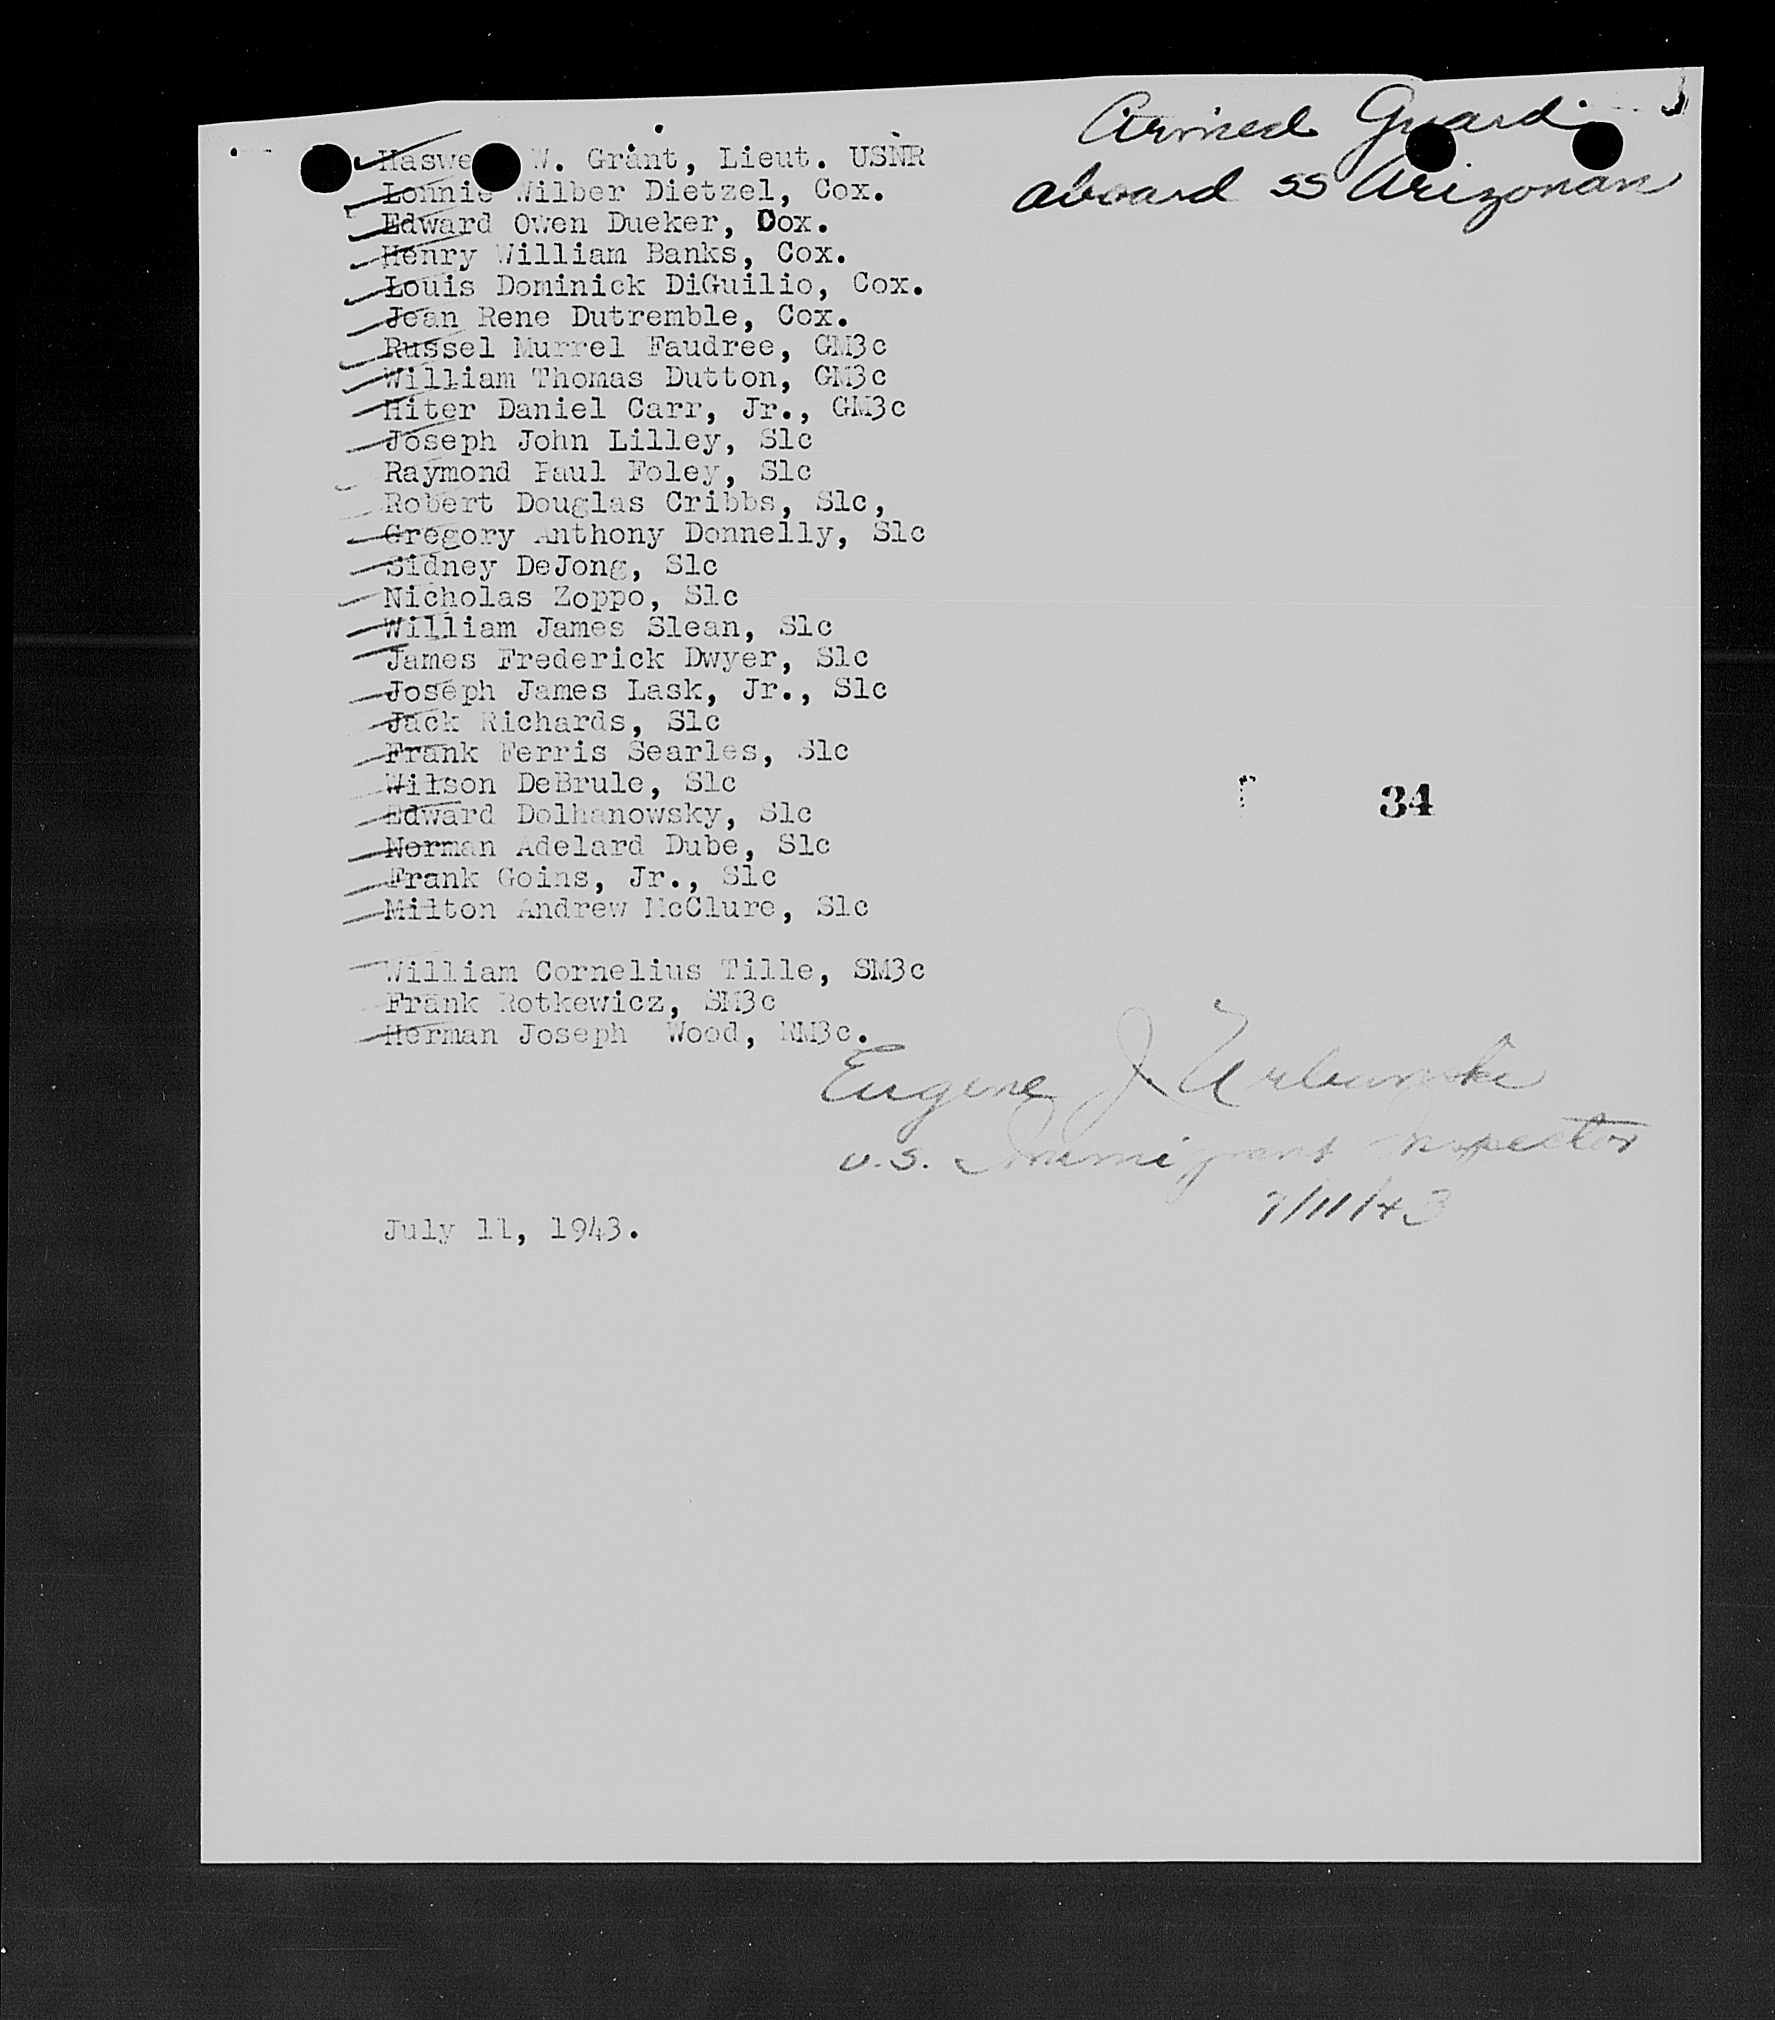 Armed Guard
aboard SS Arizonan
W. Grant, Lieut. USNR
Lonnie Wilber Dietzel, Cox.
Edward Owen Dueker, Cox.
Henry William Banks, Cox.
Louis Dominick DiGuilio, Cox.
Jean Rene Dutremble, Cox.
Russel Murrel Faudree, GM3c
William Thomas Dutton, GM3c
Hiter Daniel Carr, Jr., GM3c
Joseph John Lilley, S1c
Raymond Paul Foley, S1c
Robert Douglas Cribbs, S1c,
Gregory Anthony Donnelly, S1c
Sidney DeJong, S1c
Nicholas Zoppo, S1c
William James Slean, S1c
James Frederick Dwyer, S1c
Joseph James Lask, Jr., S1c
Jack Richards, S1c
Frank Ferris Searles, S1c
Wilson DeBrule, S1c
34
Edward Dolhanowsky, S1c
Norman Adelard Dube, S1c
Frank Goins, Jr., S1c
Milton Andrew McClure, S1c
William Cornelius Tille, SM3c
Frank Rotkewicz, SM3c
Herman Joseph Wood, RM3c.
Eugene J.
U.S. Immigrant Inspector
7/11/43
July 11, 1943.